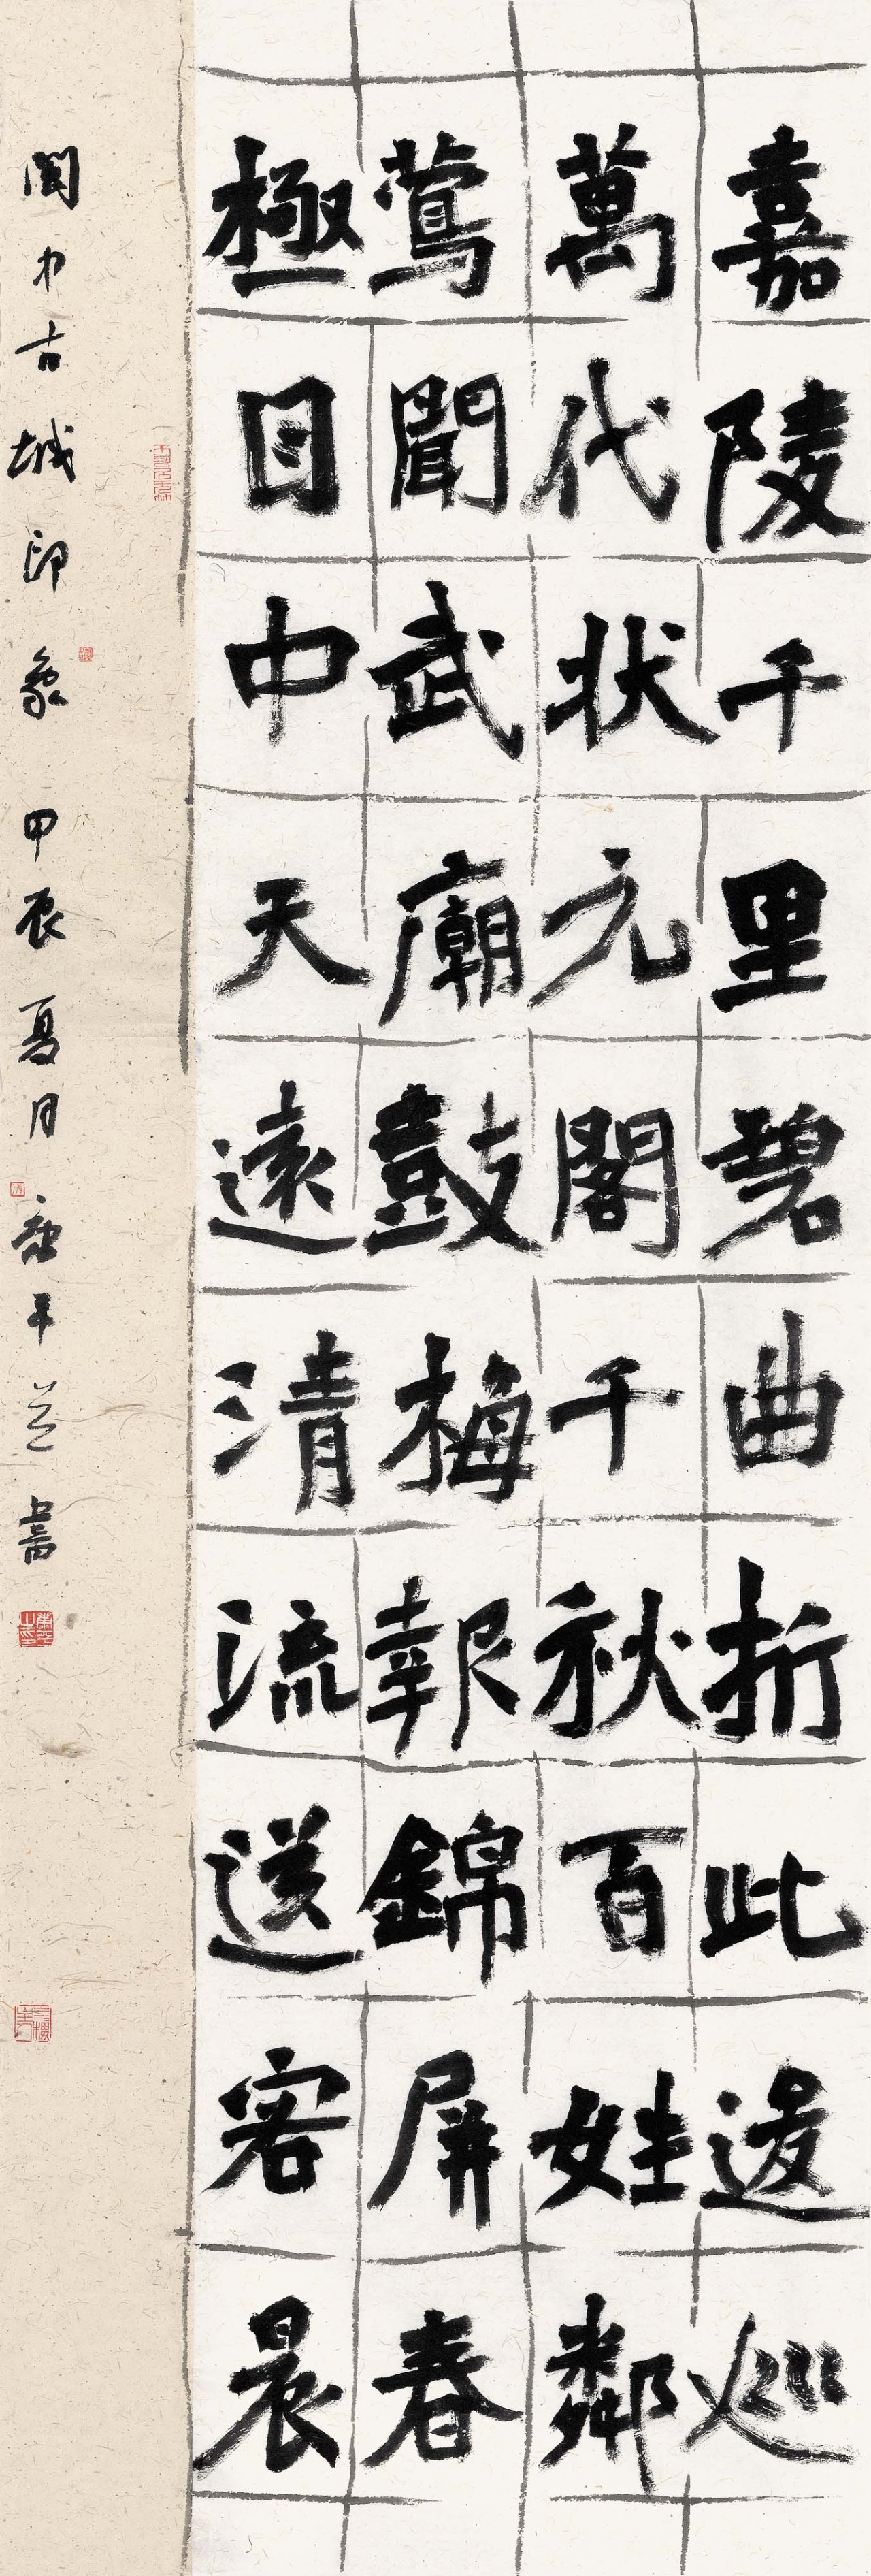 嘉陵千里碧曲折此逡巡
萬代狀元閣千秋百姓鄰
鶯聞武廟鼓梅報錦屏春
極目中天遠清流送客晨
閬中古城印象 甲辰夏月 平並書